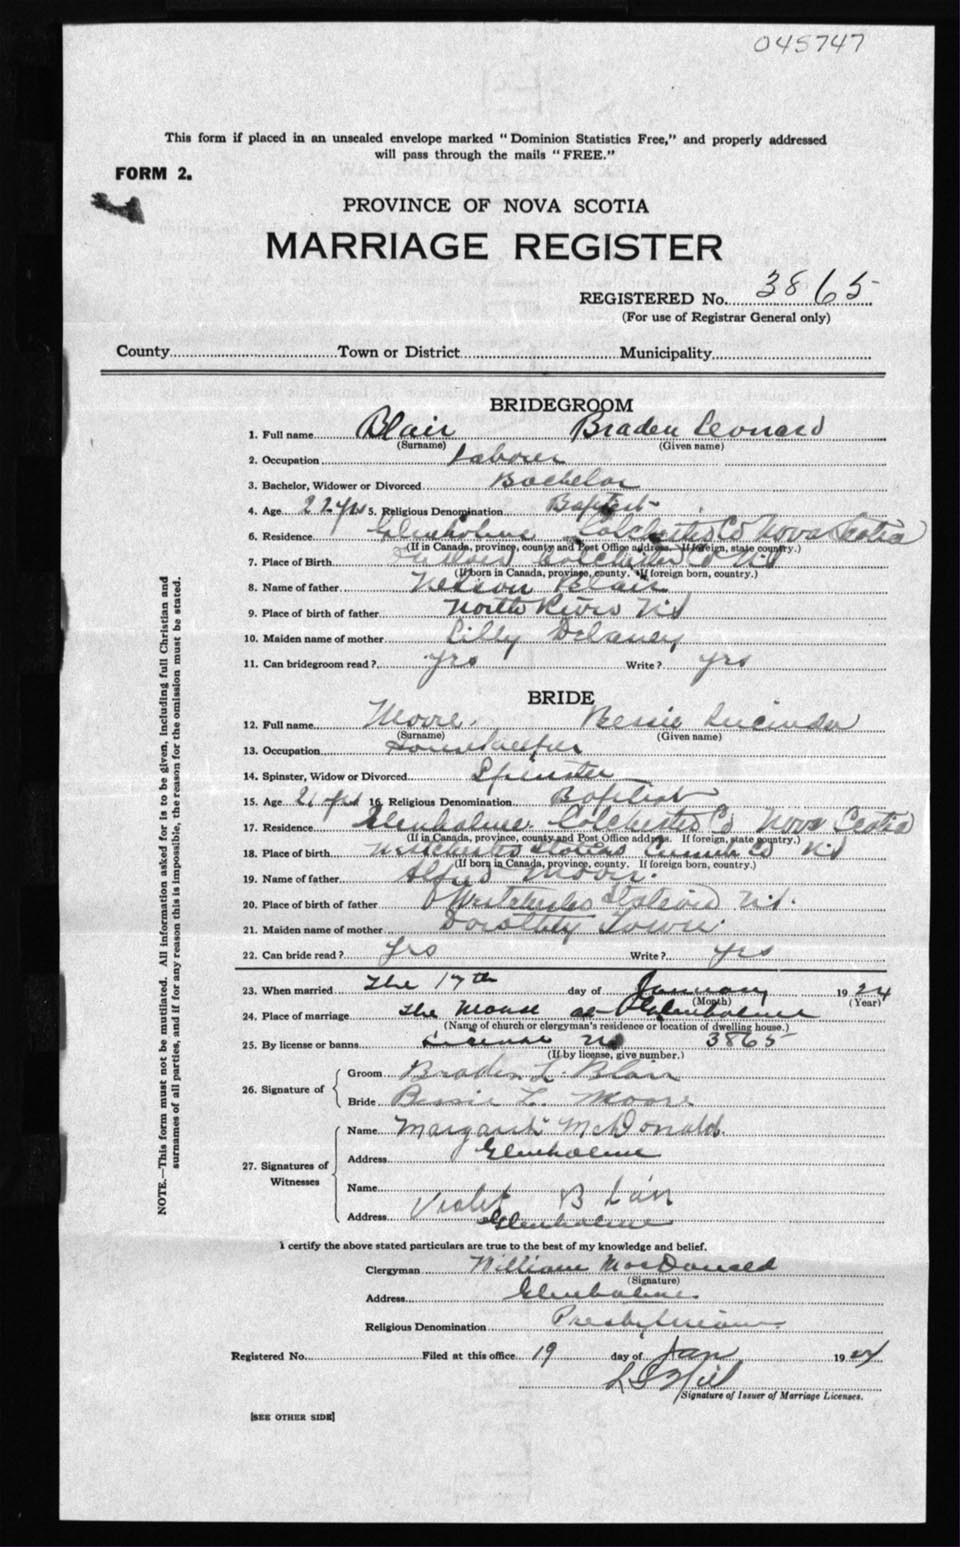 045747
This form if placed in an unsealed envelope marked " Dominion Statistics Free," and properly addressed
will pass through the mails " FREE."
FORM 2.
PROVINCE OF NOVA SCOTIA
MARRIAGE REGISTER
REGISTERED No. 3865
(For use of Registrar General only)
County Town or District Municipality
BRIDEGROOM
1. Full name Blair Braden Leonard
(Surname) (Given name)
2. Occupation Labourer
3. Bachelor, Widower or Divorced Bachelor
4. Age 22 yrs 5. Religious Denomination Baptist
6. Residence Glenholme Colchester Co Nova Scotia
(If in Canada, province, county and Post Office address. If foreign, state country.)
7. Place of Birth Colchester Co N.S
(If born in Canada, province, county. If foreign born, country.)
8. Name of father Nelson Blair
9. Place of birth of father North River N.S
10. Maiden name of mother Lilly Delaney
11. Can bridegroom read? yes Write? yes
BRIDE
12. Full name Moore Bessie Lucinda
(Surname) (Given name)
13. Occupation Housekeeper
14. Spinster, Widow or Divorced Spinster
15. Age 21 yrs 16. Religious Denomination Baptist
17. Residence Glenholme Colchester Co Nova Scotia
(If in Canada, province, county and Post Office address. If foreign, state country.)
18. Place of birth Westchester Station Cumb Co N.S
(If born in Canada, province, county. If foreign born, country.)
19. Name of father Alfred Moore.
20. Place of birth of father Westchester Station N.S.
21. Maiden name of mother Dorothy
22. Can bride read? yes Write? yes
23. When married The 17th day of January 1924
(Month) (Year)
24. Place of marriage The Manse at Glenholme
(Name of church or clergyman's residence or location of dwelling house.)
25. By license or banns License No 3865
(If by license, give number.)
26. Signature of
Groom Braden L. Blair
Bride Bessie L. Moore
27. Signatures of Witnesses
Name Margaret McDonald.
Address Glenholme
Name Violet Blair
Address Glenholme
I certify the above stated particulars are true to the best of my knowledge and belief.
Clergyman William MacDonald
(Signature)
Address Glenholme
Religious Denomination Presbyterian
Registered No. Filed at this office 19 day of Jan 1924
Hill
Signature of Issuer of Marriage Licenses.
[SEE OTHER SIDE]
NOTE.—This form must not be mutilated. All information asked for is to be given, including full Christian and
surnames of all parties, and if for any reason this is impossible, the reason for the omission must be stated.